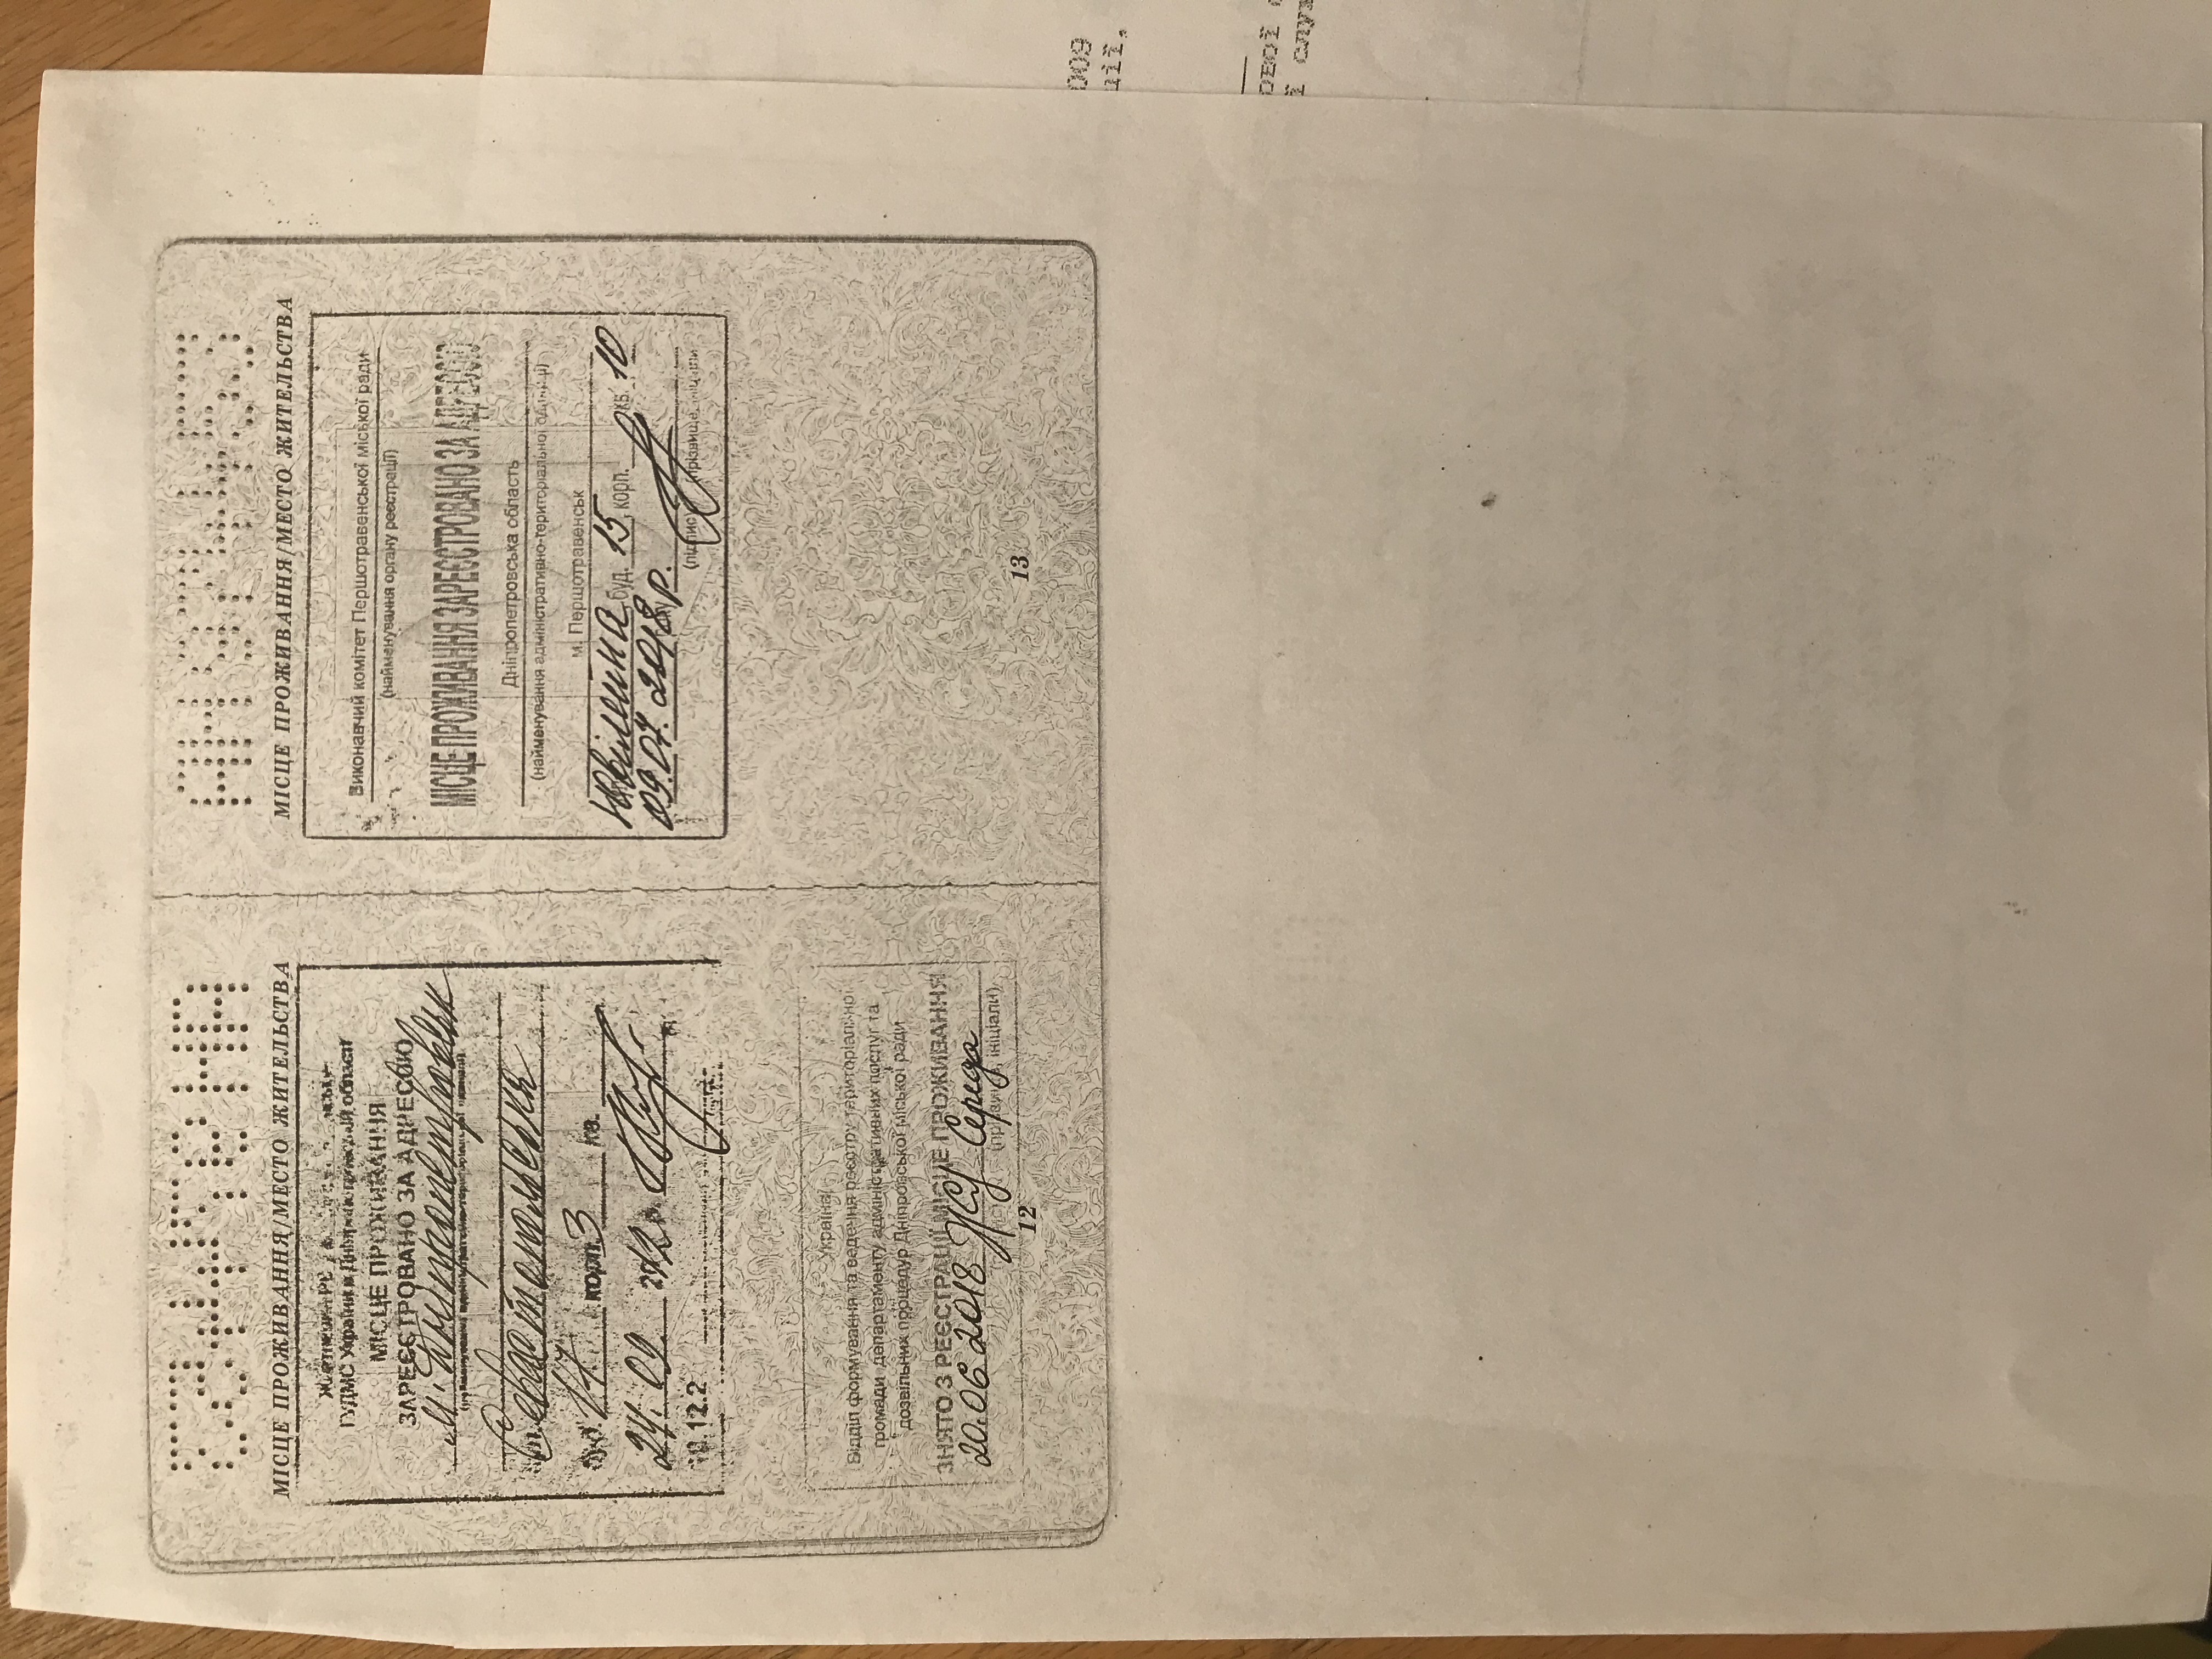 МІСЦЕ ПРОЖИВАННЯ/МЕСТО ЖИТЕЛЬСТВА
ГУДМС України в Дніпропетровській області
МІСЦЕ ПРОЖИВАННЯ
ЗАРЕЄСТРОВАНО ЗА АДРЕСОЮ
м. Дніпропетровськ
(найменування адміністративно-територіальної одиниці)
Севастопольська
буд. 17 корп. 3 кв.
24.09. 2012 р.
12.2
Україна
Відділ формування та ведення реєстру територіальної
громади департаменту адміністративних послуг та
дозвільних процедур Дніпровської міської ради
ЗНЯТО З РЕЄСТРАЦІЇ МІСЦЕ ПРОЖИВАННЯ
20.06 2018 Середа
(прізвище, ініціали)
12
АН 974453
МІСЦЕ ПРОЖИВАННЯ/МЕСТО ЖИТЕЛЬСТВА
Виконавчий комітет Першотравенської міської ради
(найменування органу реєстрації)
МІСЦЕ ПРОЖИВАННЯ ЗАРЕЄСТРОВАНО ЗА АДРЕСОЮ
Дніпропетровська область
(найменування адміністративно-територіальної одиниці)
м. Першотравенськ
Ювілейна буд. 15, корп. кв. 10
09.07. 2018 р.
(підпис) (прізвище, ініціали
13
009
ції,
ової
ї служ